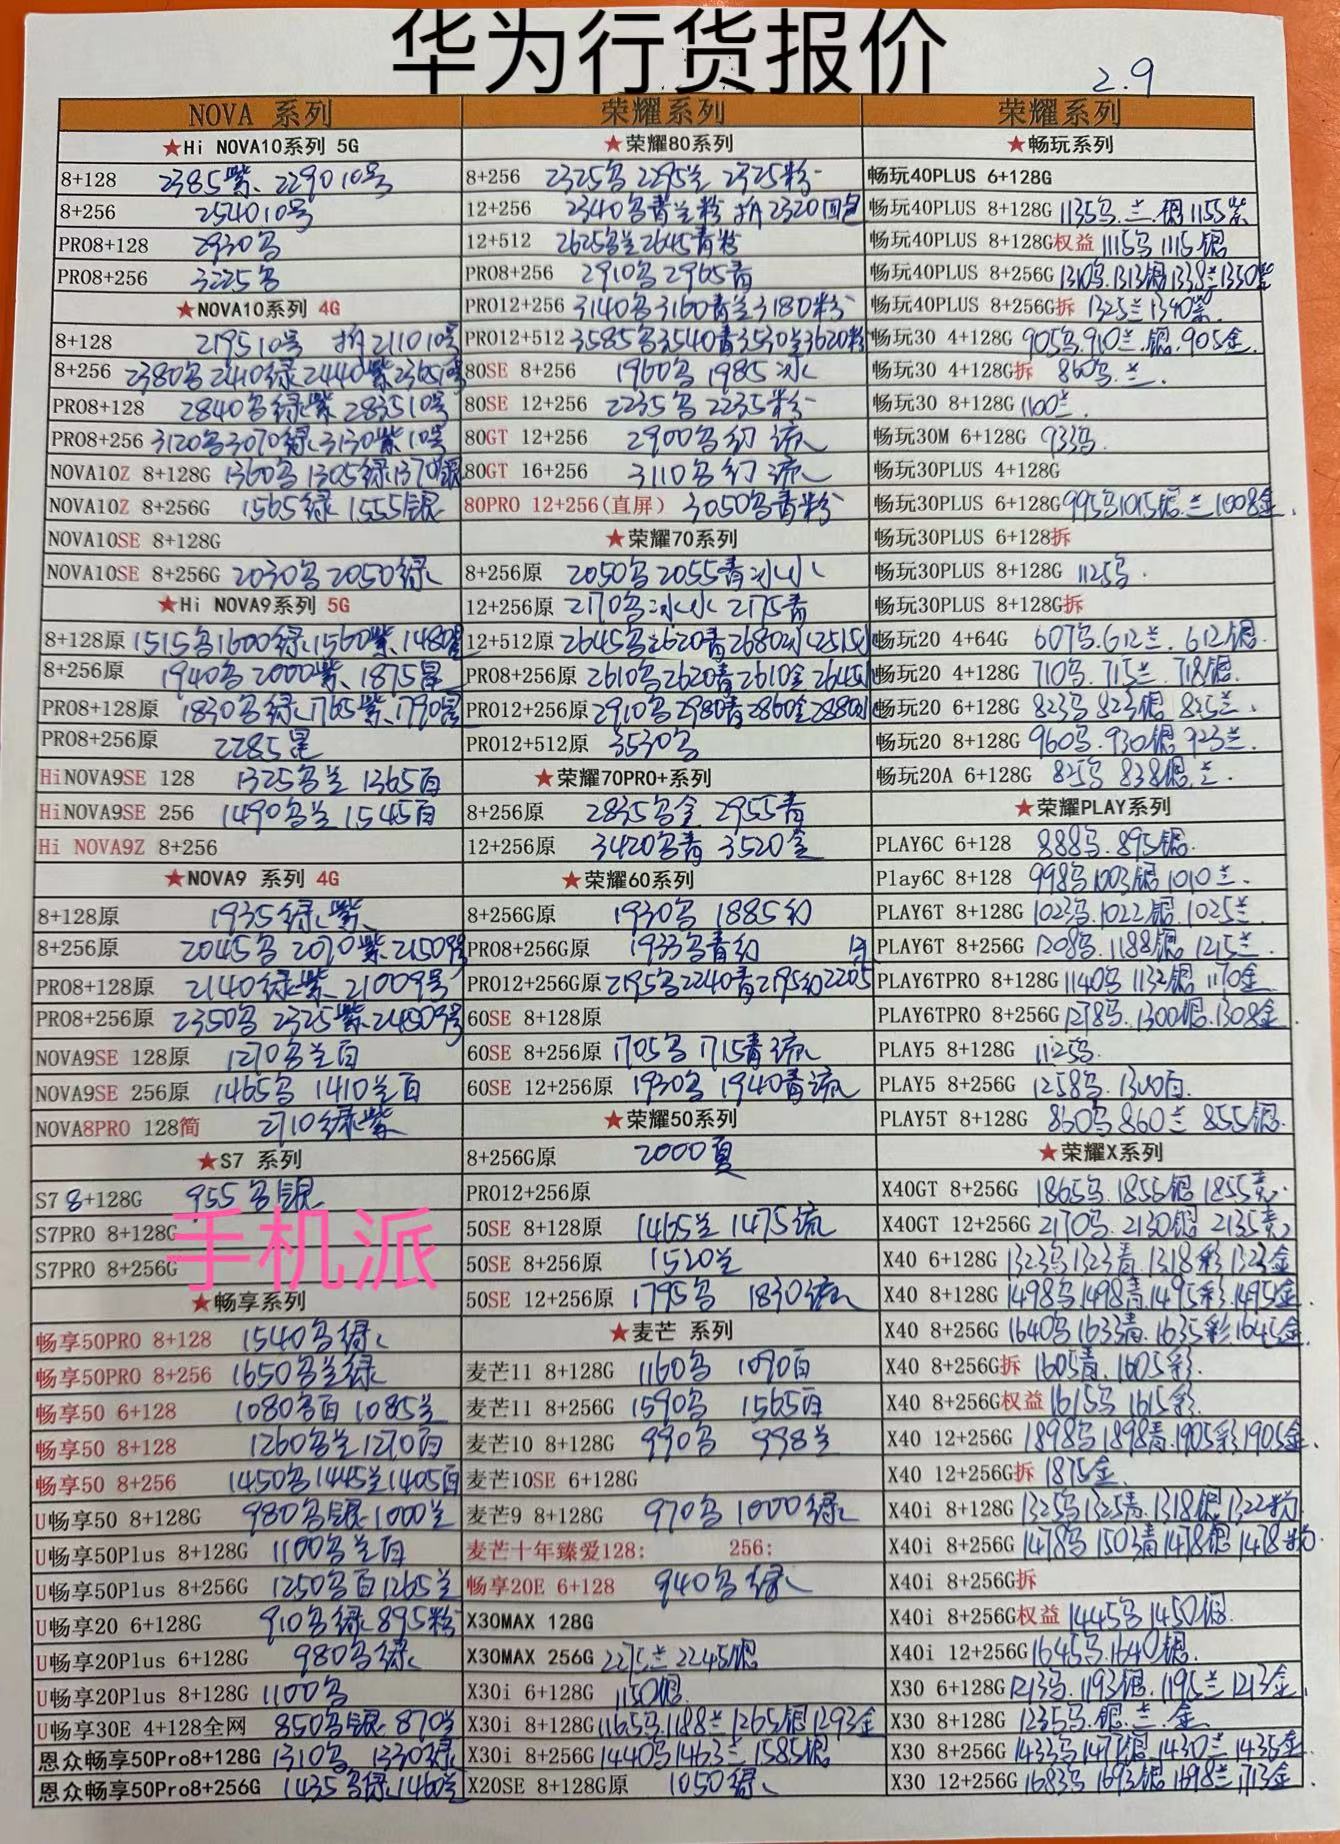 华为行货报价
2.9
NOVA 系列
★Hi NOVA10系列 5G
8+128 2385紫、2290 10号
8+256 2540 10号
PRO8+128 2930乌
PRO8+256 3225乌
★NOVA10系列 4G
8+128 2195 10号 拆2110 10号
8+256 2380乌2410绿2440紫2365 10号
PRO8+128 2840乌绿紫 2835 10号
PRO8+256 3120乌3070绿3130紫10号
NOVA10Z 8+128G 1360乌1305绿1370银
NOVA10Z 8+256G 1565绿 1555银
NOVA10SE 8+128G
NOVA10SE 8+256G 2030乌2050绿
★Hi NOVA9系列 5G
8+128原 1515乌1600绿1560紫1480星
8+256原 1940乌2000紫、1875星
PRO8+128原 1830乌绿1765紫1790星
PRO8+256原 2285星
HiNOVA9SE 128 1325乌兰 1365百
HiNOVA9SE 256 1490乌兰1545百
Hi NOVA9Z 8+256
★NOVA9 系列 4G
8+128原 1935绿紫
8+256原 2045乌 2070紫2150 9号
PRO8+128原 2140绿紫 2100 9号
PRO8+256原 2350乌 2325紫2450 9号
NOVA9SE 128原 1270乌兰百
NOVA9SE 256原 1465乌 1410兰百
NOVA8PRO 128简 2710绿紫
★S7 系列
S7 8+128G 955乌银
S7PRO 8+128G
S7PRO 8+256G
手机派
★畅享系列
畅享50PRO 8+128 1540乌绿
畅享50PRO 8+256 1650乌兰绿
畅享50 6+128 1080乌百 1085兰
畅享50 8+128 1260乌兰1270百
畅享50 8+256 1450乌1445兰1405百
U畅享50 8+128G 980乌银 1000兰
U畅享50Plus 8+128G 1100乌兰百
U畅享50Plus 8+256G 1250乌百1265兰
U畅享20 6+128G 910乌绿895粉
U畅享20Plus 6+128G 980乌绿
U畅享20Plus 8+128G 1100乌
U畅享30E 4+128全网 850乌银 870兰
恩众畅享50Pro8+128G 1310乌 1330绿
恩众畅享50Pro8+256G 1435乌绿1460兰
荣耀系列
★荣耀80系列
8+256 2325乌2295兰 2325粉
12+256 2340乌青兰粉 拆2320回包
12+512 2625乌兰2645青粉
PRO8+256 2910乌2965青
PRO12+256 3140乌3160青兰3180粉
PRO12+512 3585乌3540青3530兰3620粉
80SE 8+256 1960乌1985冰
80SE 12+256 2235乌2235粉
80GT 12+256 2900乌幻 流
80GT 16+256 3110乌幻 流
80PRO 12+256(直屏) 3050乌青粉
★荣耀70系列
8+256原 2050乌2055青冰水
12+256原 2170乌冰水 2175青
12+512原 2645乌2620青2680
PRO8+256原 2610乌2620青2610金2645
PRO12+256原 2910乌2980青2860金2880
PRO12+512原 3530乌
★荣耀70PRO+系列
8+256原 2835乌金 2955青
12+256原 3420乌青 3520金
★荣耀60系列
8+256G原 1930乌 1885幻
PRO8+256G原 1933乌青幻
PRO12+256G原 2195乌2240青2195幻2205
60SE 8+128原
60SE 8+256原 1705乌1715青流
60SE 12+256原 1930乌1940青流
★荣耀50系列
8+256G原 2000夏
PRO12+256原
50SE 8+128原 1465兰 1475流
50SE 8+256原 1520兰
50SE 12+256原 1795乌 1830流
★麦芒 系列
麦芒11 8+128G 1160乌 1090百
麦芒11 8+256G 1590乌 1565百
麦芒10 8+128G 990乌 998兰
麦芒10SE 6+128G
麦芒9 8+128G 970乌1000绿
麦芒十年臻爱128: 256:
畅享20E 6+128 940乌绿
X30MAX 128G
X30MAX 256G 2275兰2245银
X30i 6+128G 1150银
X30i 8+128G 1165乌1188兰1265银1293金
X30i 8+256G 1440乌1463兰1585银
X20SE 8+128G原 1050绿
荣耀系列
★畅玩系列
畅玩40PLUS 6+128G
畅玩40PLUS 8+128G 1135乌.兰.银1155紫
畅玩40PLUS 8+128G权益 1115乌1115银
畅玩40PLUS 8+256G 1310乌.1313银1338兰1350紫
畅玩40PLUS 8+256G拆 1325兰1340紫.
畅玩30 4+128G 905乌.910兰.银.905金.
畅玩30 4+128G拆 860乌.兰.
畅玩30 8+128G 1100兰.
畅玩30M 6+128G 933乌.
畅玩30PLUS 4+128G
畅玩30PLUS 6+128G 995乌1015银.兰1008金.
畅玩30PLUS 6+128拆
畅玩30PLUS 8+128G 1125乌.
畅玩30PLUS 8+128G拆
畅玩20 4+64G 607乌.612兰.612银.
畅玩20 4+128G 710乌.715兰.718银.
畅玩20 6+128G 823乌823银825兰.
畅玩20 8+128G 960乌.930银923兰.
畅玩20A 6+128G 825乌838银.兰.
★荣耀PLAY系列
PLAY6C 6+128 888乌.895银.
Play6C 8+128 998乌1003银1010兰.
PLAY6T 8+128G 1023乌.1022银.1025兰.
PLAY6T 8+256G 1208乌.1188银.1215兰.
PLAY6TPRO 8+128G 1140乌1132银1170金.
PLAY6TPRO 8+256G 1278乌.1300银.1308金.
PLAY5 8+128G 1125乌.
PLAY5 8+256G 1258乌.1300百.
PLAY5T 8+128G 860乌860兰855银.
★荣耀X系列
X40GT 8+256G 1865乌.1855银1855青.
X40GT 12+256G 2170乌.2130银2135青
X40 6+128G 1323乌1323青.1318彩1323金
X40 8+128G 1498乌1498青.1495彩.1495金.
X40 8+256G 1640乌1633青.1635彩1645金.
X40 8+256G拆 1605青.1605彩.
X40 8+256G权益 1615乌1615彩.
X40 12+256G 1898乌1898青.1905彩1905金.
X40 12+256G拆 1875金.
X40i 8+128G 1325乌1325青.1318银1322粉
X40i 8+256G 1478乌1503青1478银1478粉.
X40i 8+256G拆
X40i 8+256G权益 1445乌1450银.
X40i 12+256G 1645乌.1640银.
X30 6+128G 1213乌.1193银.1195兰1213金.
X30 8+128G 1235乌.银.兰.金.
X30 8+256G 1433乌1471银.1430兰1435金.
X30 12+256G 1683乌1693银1698兰1713金.